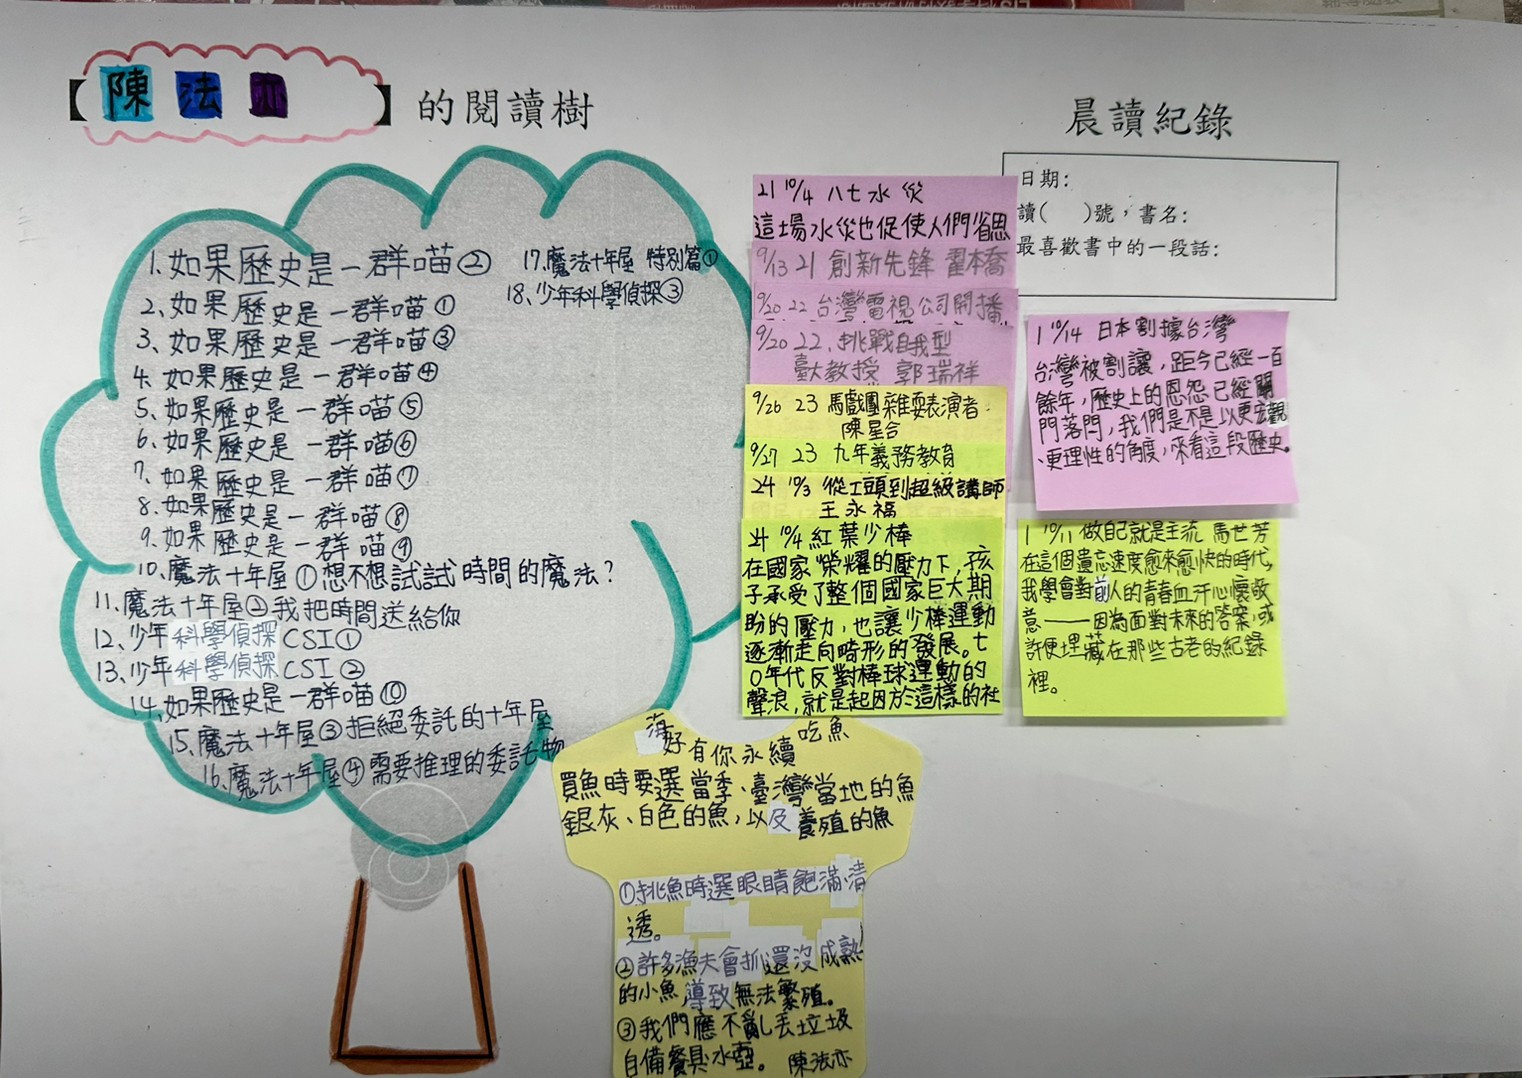 【陳法亦】的閱讀樹
1.如果歷史是一群喵②
2.如果歷史是一群喵①
3、如果歷史是一群喵③
4.如果歷史是一群喵④
5、如果歷史是一群喵⑤
6、如果歷史是一群喵⑥
7、如果歷史是一群喵⑦
8.如果歷史是一群喵⑧
9、如果歷史是一群喵⑨
10、魔法十年屋①想不想試試時間的魔法?
11.魔法十年屋②我把時間送給你
12、少年科學偵探CSI①
13、少年科學偵探CSI②
14、如果歷史是一群喵⑩
15、魔法十年屋③拒絕委託的十年屋
16、魔法十年屋④需要推理的委託物
17.魔法十年屋 特別篇①
18、少年科學偵探③
21 10/4 八七水災
這場水災也促使人們省思
9/13 21 創新先鋒 翟本喬
9/20 22 台灣電視公司開播
9/20 22、挑戰自我型
臺大教授 郭瑞祥
9/26 23 馬戲團雜耍表演者:
陳星合
9/27 23 九年義務教育
24 10/3 從工頭到超級講師
王永福
24 10/4 紅葉少棒
在國家榮耀的壓力下,孩
子承受了整個國家巨大期
盼的壓力,也讓少棒運動
逐漸走向畸形的發展。七
0年代反對棒球運動的
聲浪,就是起因於這樣的社
晨讀紀錄
日期:
讀( )號,書名:
最喜歡書中的一段話:
1 10/14 日本割據台灣
台灣被割讓,距今已經一百
餘年,歷史上的恩怨已經關
門落閂,我們是不是以更宏觀
、更理性的角度,來看這段歷史。
1 10/11 做自己就是主流 馬世芳
在這個遺忘速度愈來愈快的時代,
我學會對前人的青春血汗心懷敬
意——因為面對未來的答案,或
許便埋藏在那些古老的紀錄
裡。
海好有你永續吃魚
買魚時要選當季、臺灣當地的魚
銀灰、白色的魚,以及養殖的魚
①挑魚時選眼睛飽滿、清
透。
②許多漁夫會抓還沒成熟
的小魚導致無法繁殖。
③我們應不亂丟垃圾
自備餐具水壺。 陳法亦